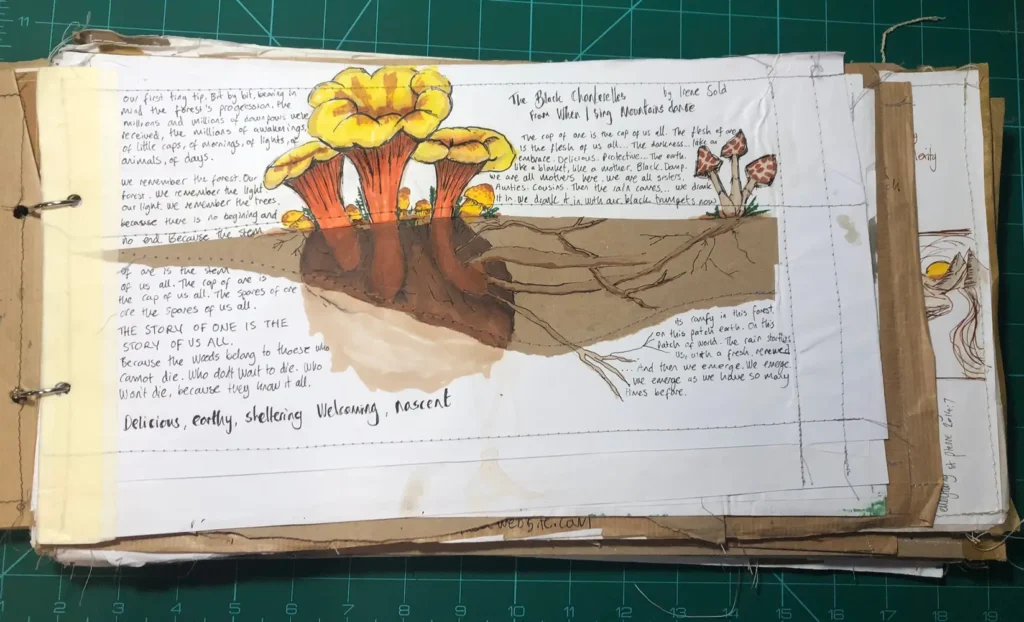 The Black Chanterelles by Irene Solà
From When I Sing Mountains dance
The cap of one is the cap of us all. The flesh of one
is the flesh of us all... The darkness... like an
embrace. Delicious. Protective... The earth.
like a blanket, like a mother. Black. Damp.
we are all mothers here. we are all sisters.
Aunties. Cousins. Then the rain comes... we drank
it in. we drank it in with our black trumpets now
its rainy in this forest.
on this patch earth. On this
patch of world. The rain startles
us, with a fresh, renewed
... And then we emerge. We emerge.
We emerge as we have so many
times before.
our first tiny tip. Bit by bit, bearing in
mind the forest's progression. the
millions and millions of downpours we've
received, the millions of awakenings,
of little caps, of mornings, of lights, of
animals, of days.
we remember the forest. Our
forest. We remember the light
our light. We remember the trees.
because there is no beginning and
no end. Because the stem
of one is the stem
of us all. The cap of one is
the cap of us all. The spores of one
are the spores of us all.
THE STORY OF ONE IS THE
STORY OF US ALL.
Because the woods belong to those who
cannot die. Who don't want to die. Who
Won't die, because they know it all.
Delicious, earthy, sheltering Welcoming, nascent
website.com
11
1
2
3
4
5
6
7
8
9
10
11
12
13
14
15
16
17
18
19